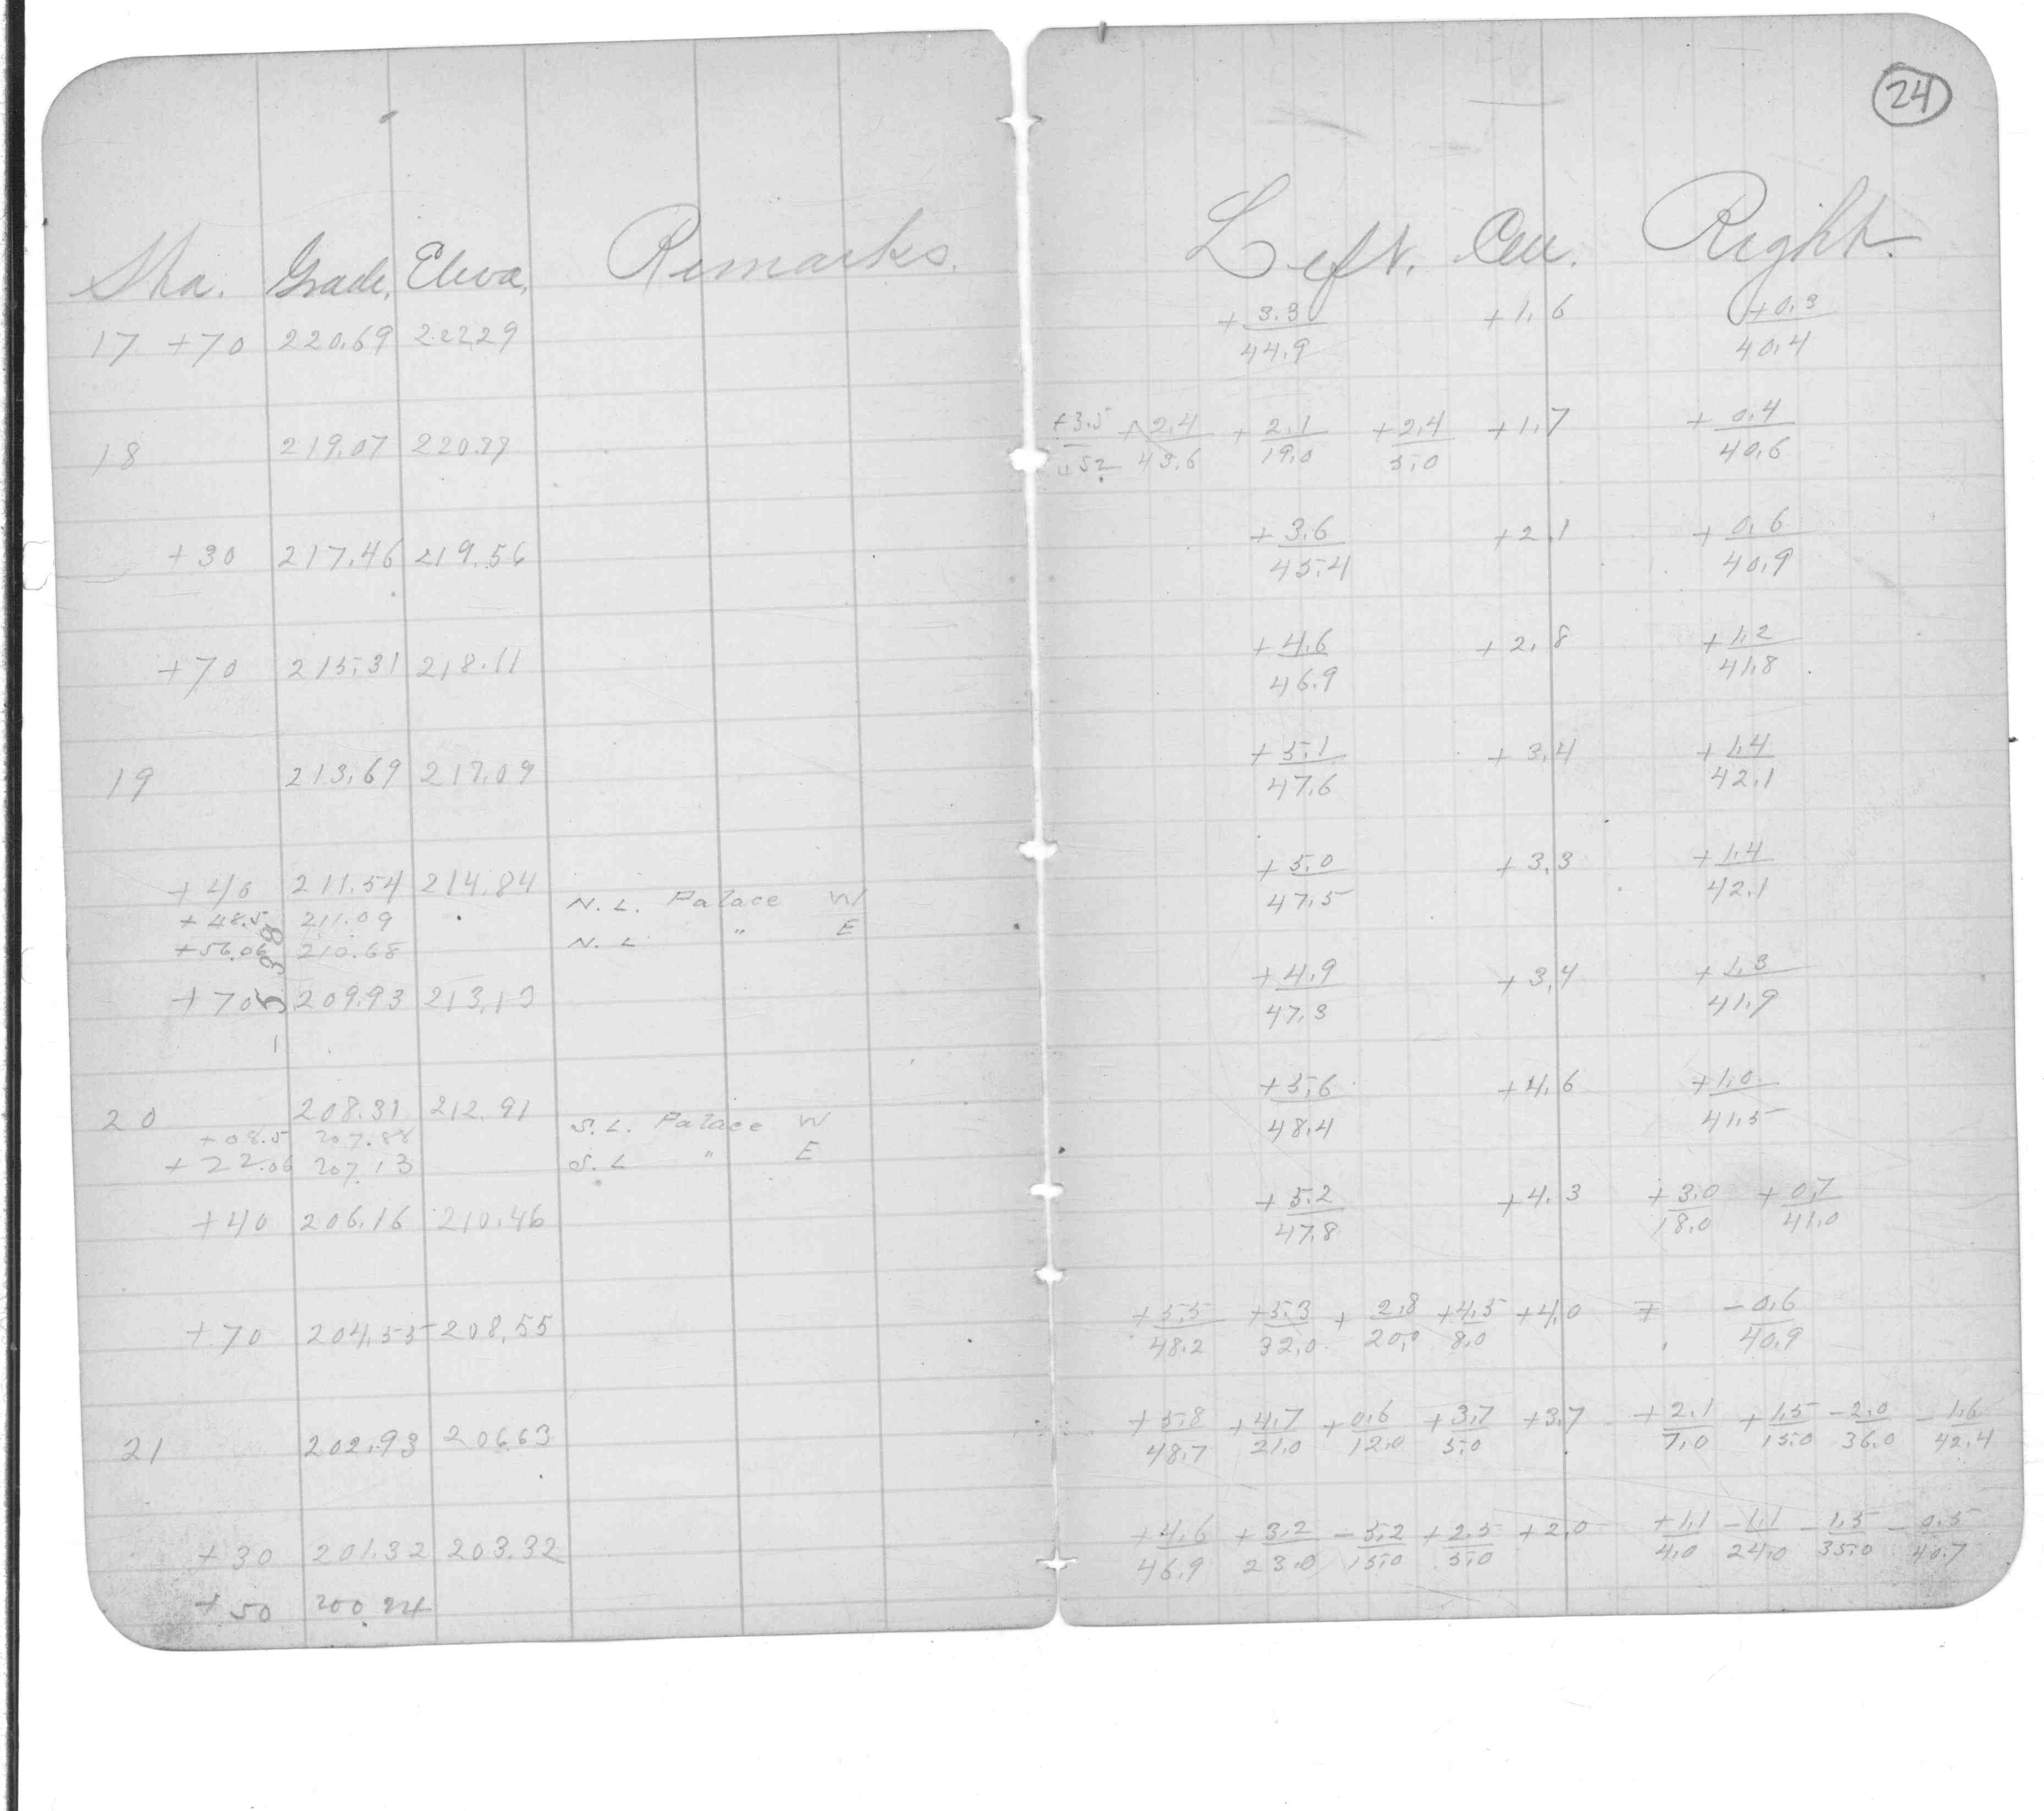 24
Sta. Grade, Eleva, Remarks. Left. Cen. Right.
17 +70 220.69 222.29 +3.3/44.9 +1.6 +0.3/40.4
18 219.07 220.77 +3.5/45.2 +2.4/43.6 +2.1/19.0 +2.4/5.0 +1.7 +0.4/40.6
+30 217.46 219.56 +3.6/45.4 +2.1 +0.6/40.9
+70 215.31 218.11 +4.6/46.9 +2.8 +1.2/41.8
19 213.69 217.09 +5.1/47.6 +3.4 +1.4/42.1
+40 211.54 214.84 +5.0/47.5 +3.3 +1.4/42.1
+48.5 211.09 N.L. Palace W
+56.06 210.68 N.L. " E
+70 209.93 213.13 +4.9/47.3 +3.4 +1.3/41.9
- 5.38
20 208.31 212.91 +5.6/48.4 +4.6 +1.0/41.5
+08.5 207.88 S.L. Palace W
+22.06 207.13 S.L " E
+40 206.16 210.46 +5.2/47.8 +4.3 +3.0/18.0 +0.7/41.0
+70 204.55 208.55 +5.5/48.2 +5.3/32.0 +2.8/20.0 +4.5/8.0 +4.0 -0.6/40.9
21 202.93 206.63 +5.8/48.7 +4.7/21.0 +0.6/12.0 +3.7/5.0 +3.7 +2.1/7.0 +1.5/15.0 -2.0/36.0 -1.6/42.4
+30 201.32 203.32 +4.6/46.9 +3.2/23.0 -5.2/15.0 +2.5/5.0 +2.0 +1.1/4.0 -1.1/24.0 -1.5/35.0 -0.5/40.7
+50 200.24